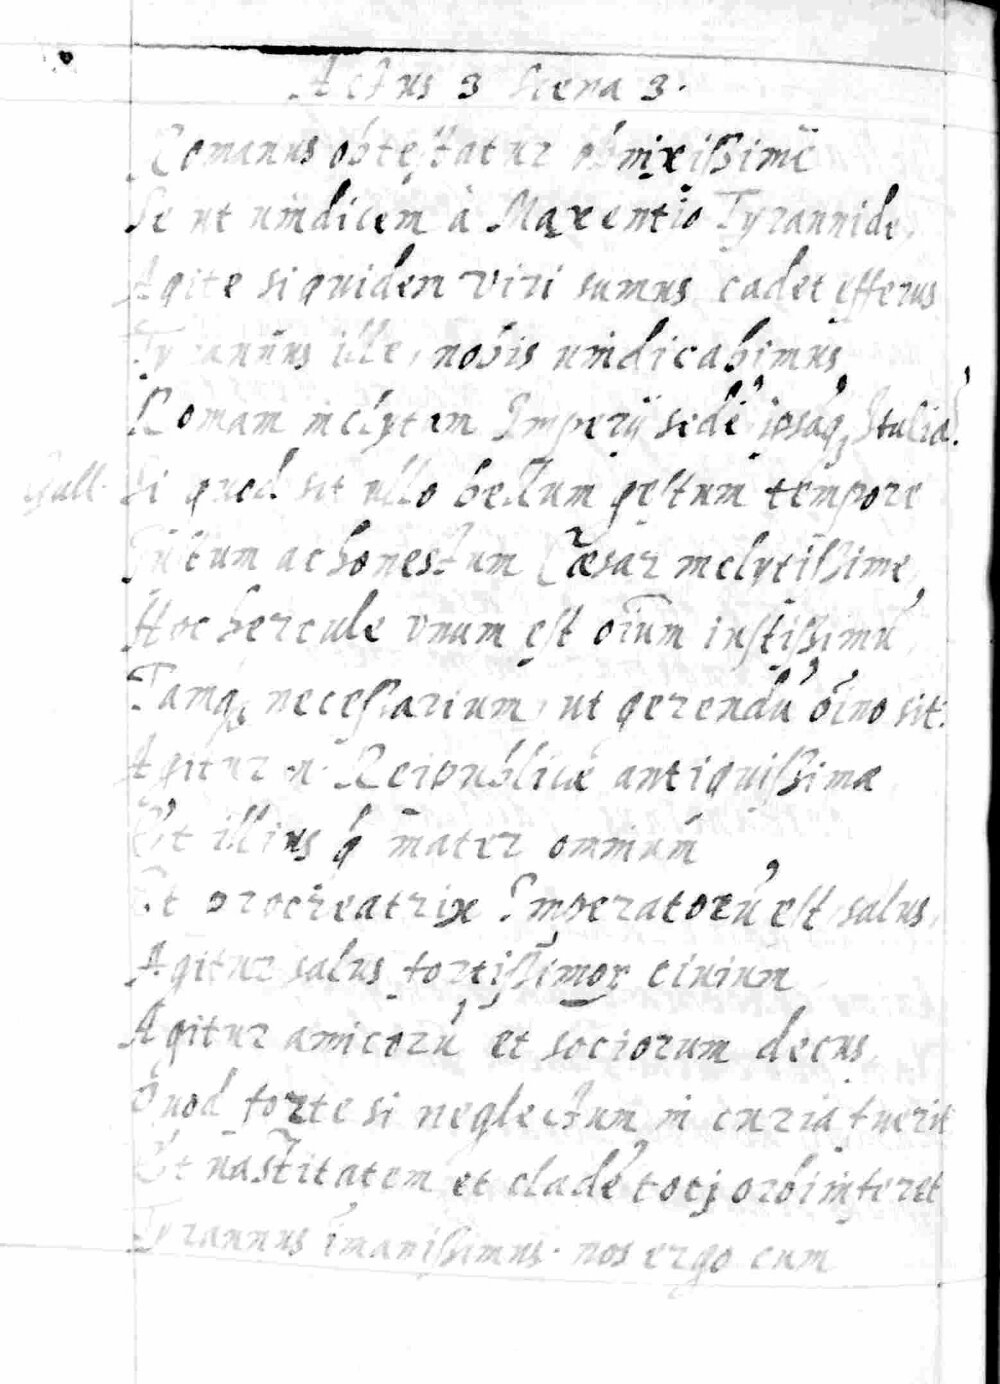 Actus 3 Scena 3.
Romanus obtestatur obnixissimè
Se ut uindicem à Maxentio Tyrannide,
Agite siquidem viri sumus cadet efferus
Tyrannus ille, nobis uindicabimus
Romam inclytam Imperij sedē ipsāq; Italiā.
Gall. Si quod sit ullo bellum gestum tempore
Iustum ac honestum Cæsar inclytissime,
Hoc hercule vnum est oīum iustissimū,
Tamq; necessarium, ut gerendū oīno sit.
Agitur n. Reipublicæ antiquissimæ
Et illius q̄ mater omnium
Et procreatrix Imperatorū est salus,
Agitur salus fortissimor ciuium
Agitur amicorū et sociorum decus,
Quod forte si neglectum in curia fuerit
Et uastitatem et cladē totj orbi inferet
Tyrannus imanissimus. nos ergo cum